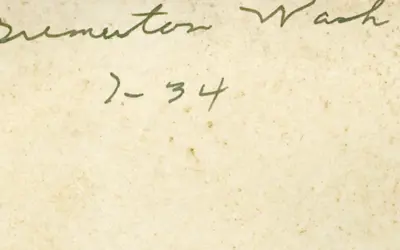 Bremerton Wash
7-34